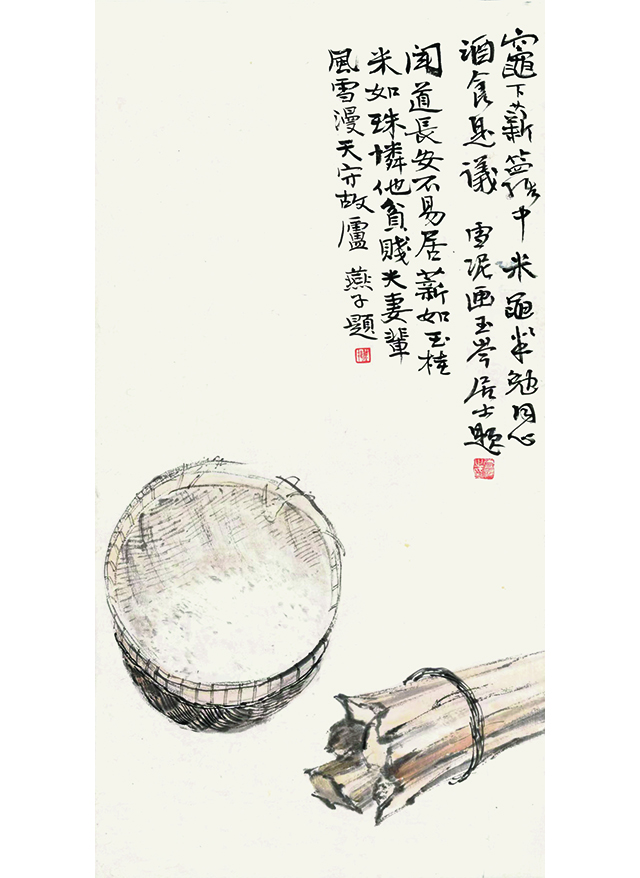 竈下薪籮中米黽勉同心
酒食是議 雪泥画玉岑居士題
闻道長安不易居薪如玉桂
米如珠憐他貧賤夫妻輩
風雪漫天守故廬 燕子題